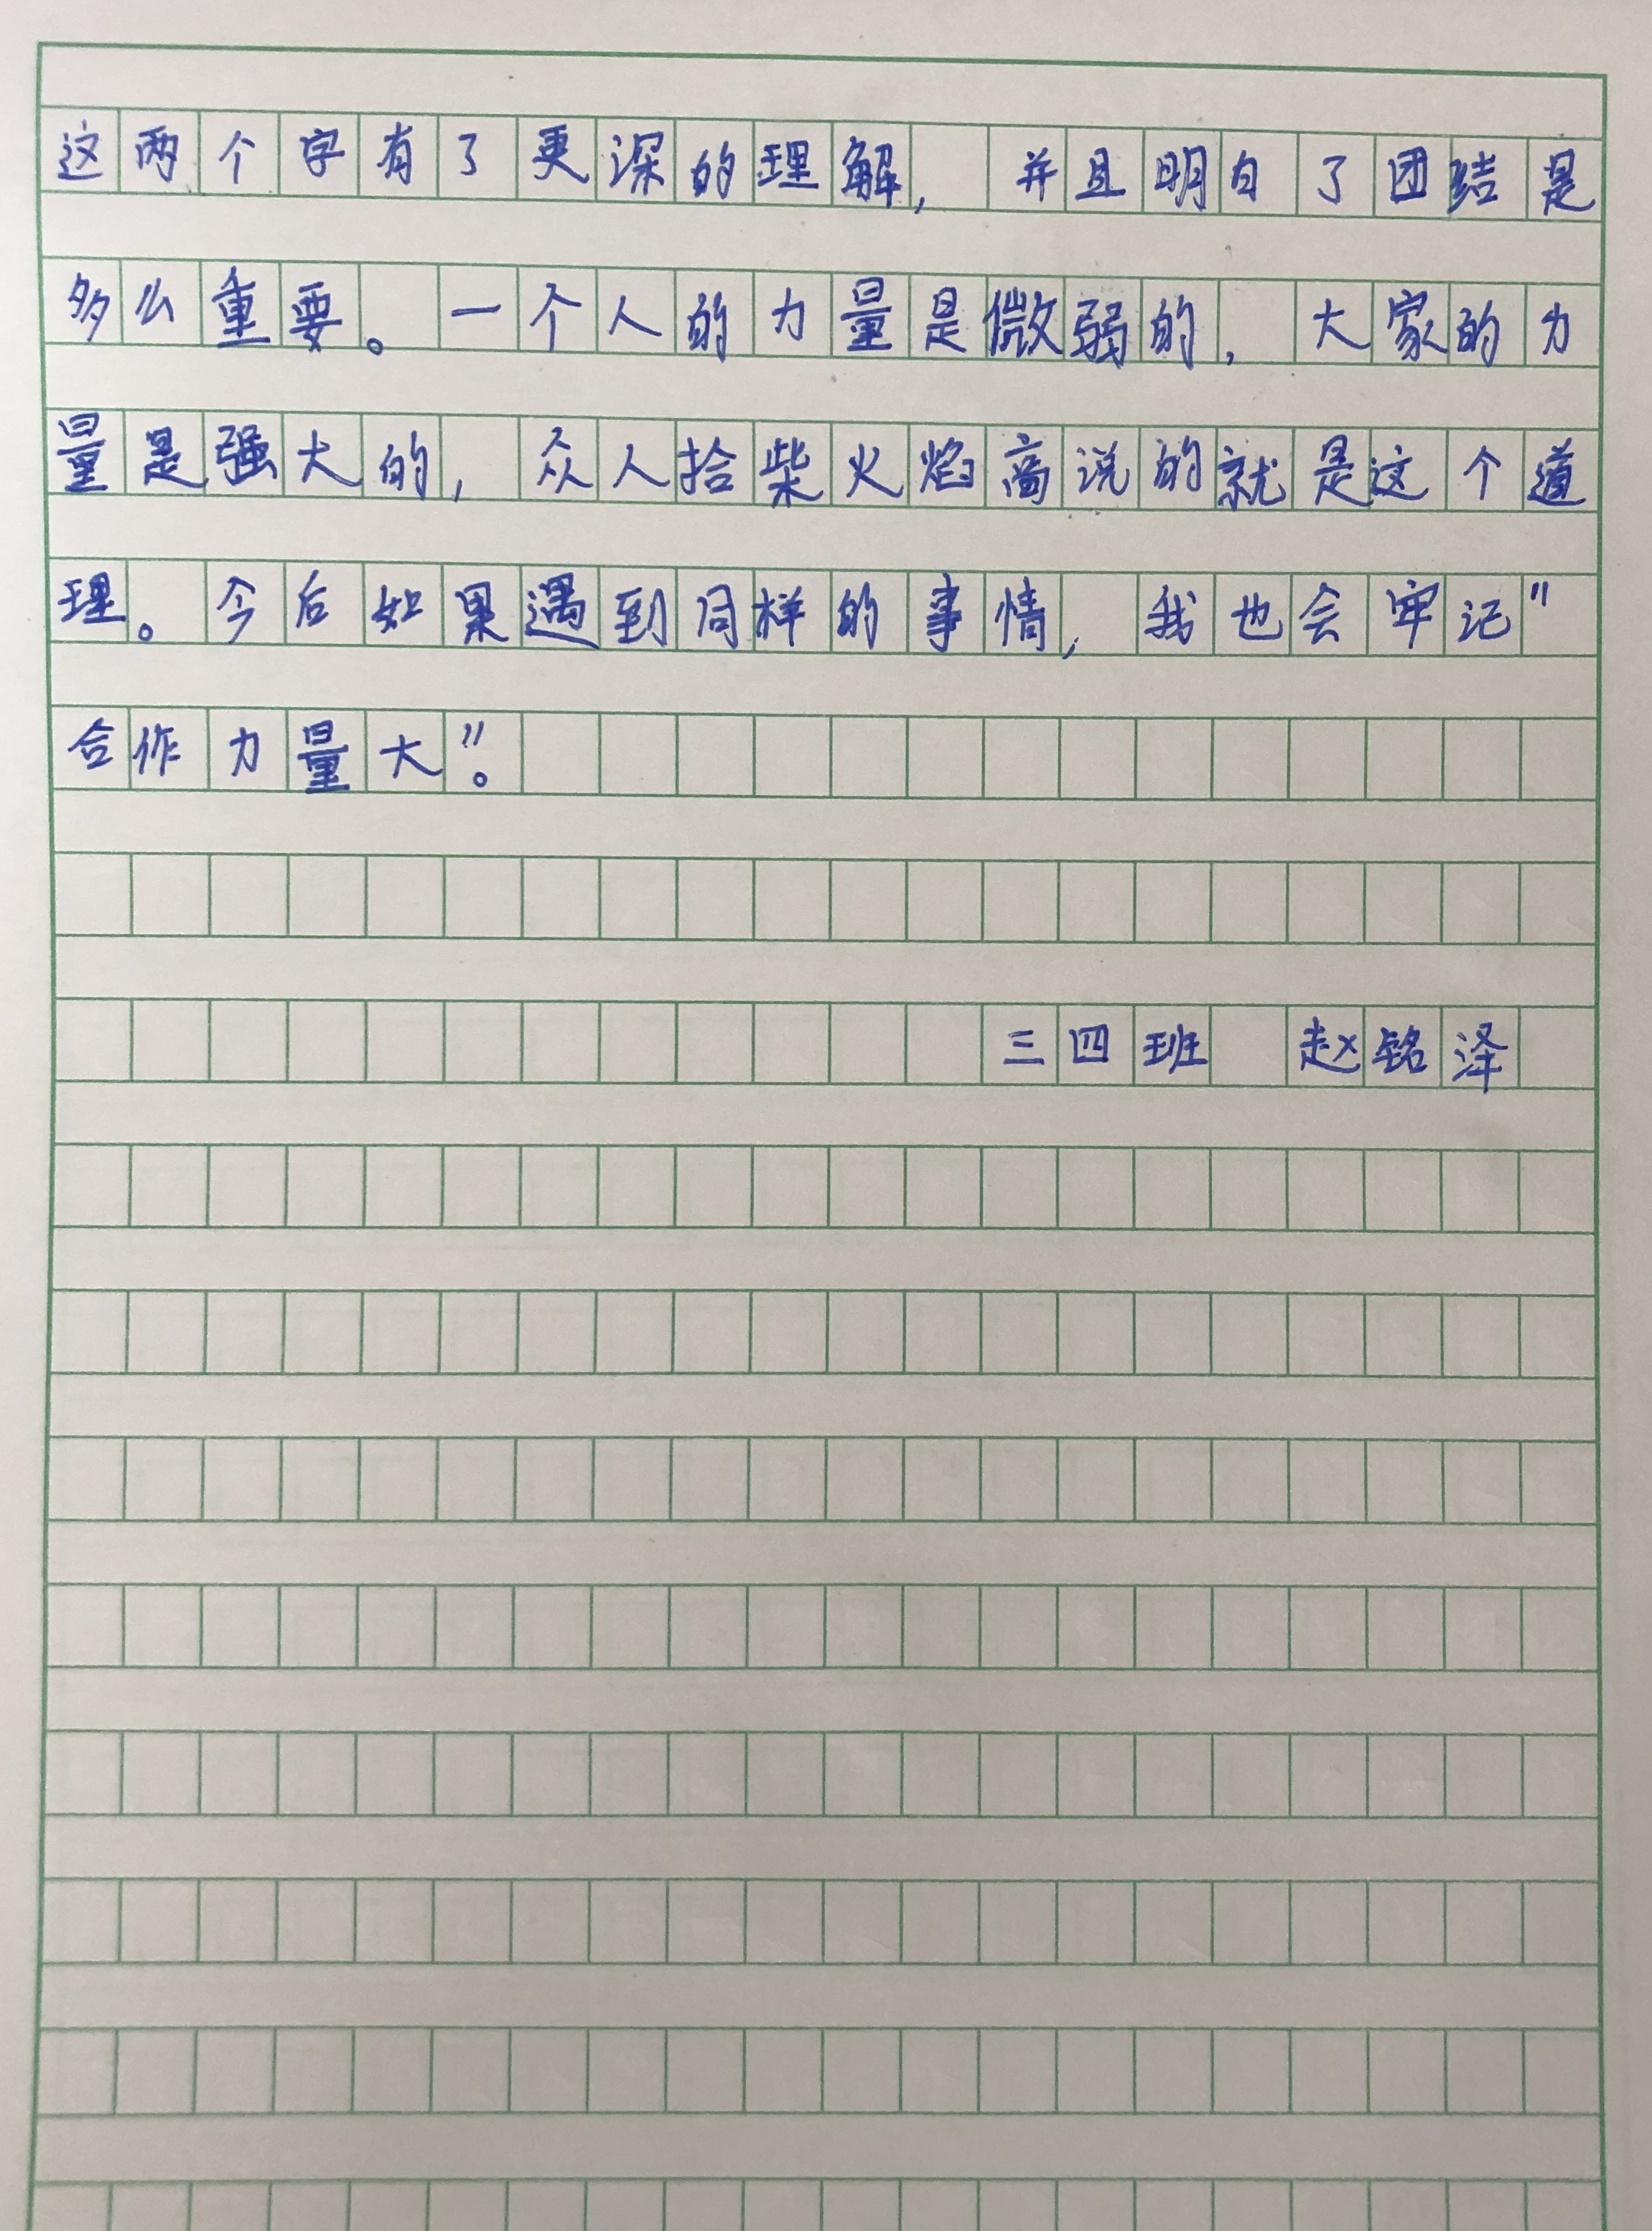 这两个字有了更深的理解，并且明白了团结是
多么重要。一个人的力量是微弱的，大家的力
量是强大的，众人拾柴火焰高说的就是这个道
理。今后如果遇到同样的事情，我也会牢记"
合作力量大"。
三四班 赵铭泽